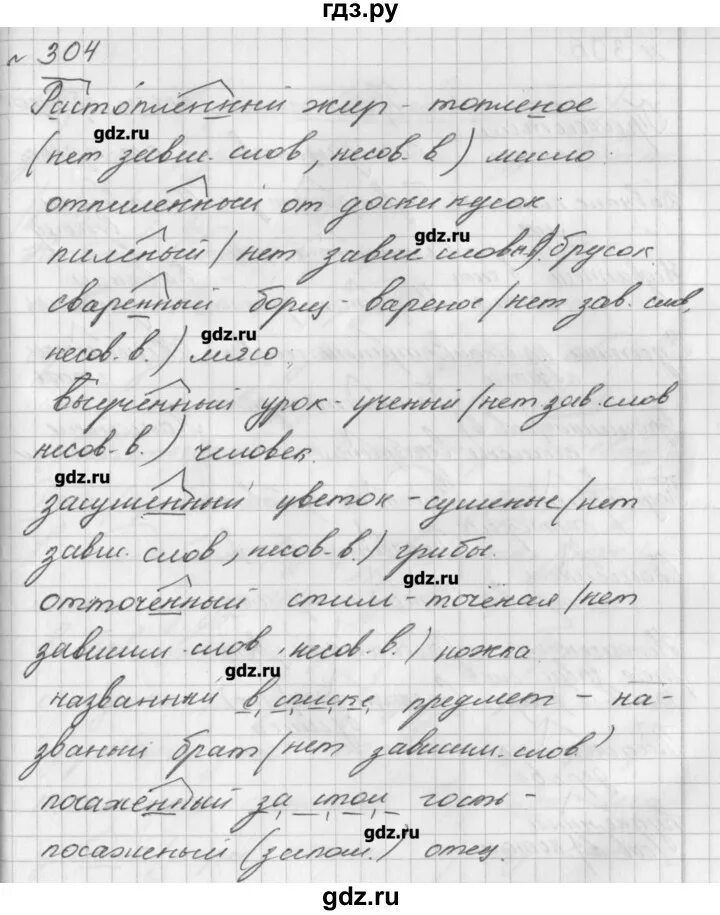 гдз.ру
№ 304
Растопленный жир - топленое
gdz.ru
(нет завис. слов, несов. в.) масло
отпиленный от доски кусок
gdz.ru
пиленый (нет завис слов) брусок
сваренный борщ - вареное (нет зав. слов,
gdz.ru
несов. в.) мясо
выученный урок - ученый (нет зав. слов
несов. в.) человек.
gdz.ru
засушенный цветок - сушеные (нет
завис. слов, несов. в.) грибы.
gdz.ru
отточенный стиль - точёная (нет
зависим. слов, несов. в.) ножка
gdz.ru
названный в списке предмет - на-
званый брат (нет зависим. слов)
gdz.ru
посаженный за стол гость -
gdz.ru
посаженый (запом.) отец.
gdz.ru